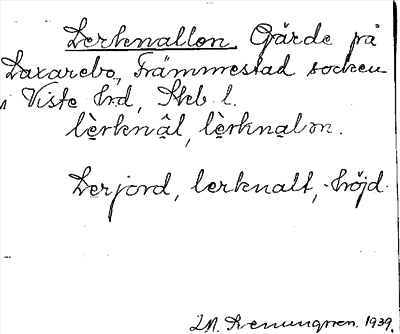 Lerknallen. Gärde på
Laxarebo, Främmestad socken
i Viste hrd, Skb. l.
lèrknâl, lèrknalɷn.
Lerjord, lerknalt, höjd.
1939.